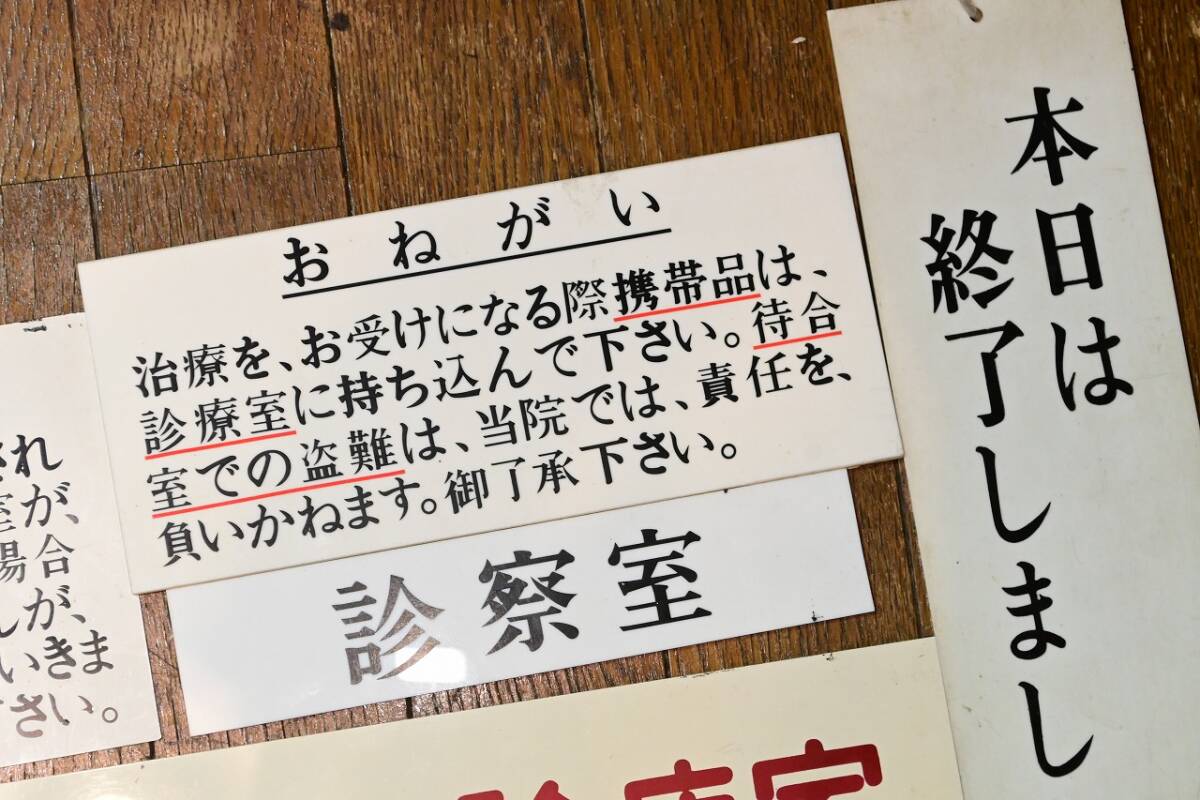 おねがい
治療を、お受けになる際携帯品は、
診療室に持ち込んで下さい。待合
室での盗難は、当院では、責任を、
負いかねます。御了承下さい。
診察室
本日は
終了しまし
され
室が、
場合
しが、
いきま
ださい。
療室